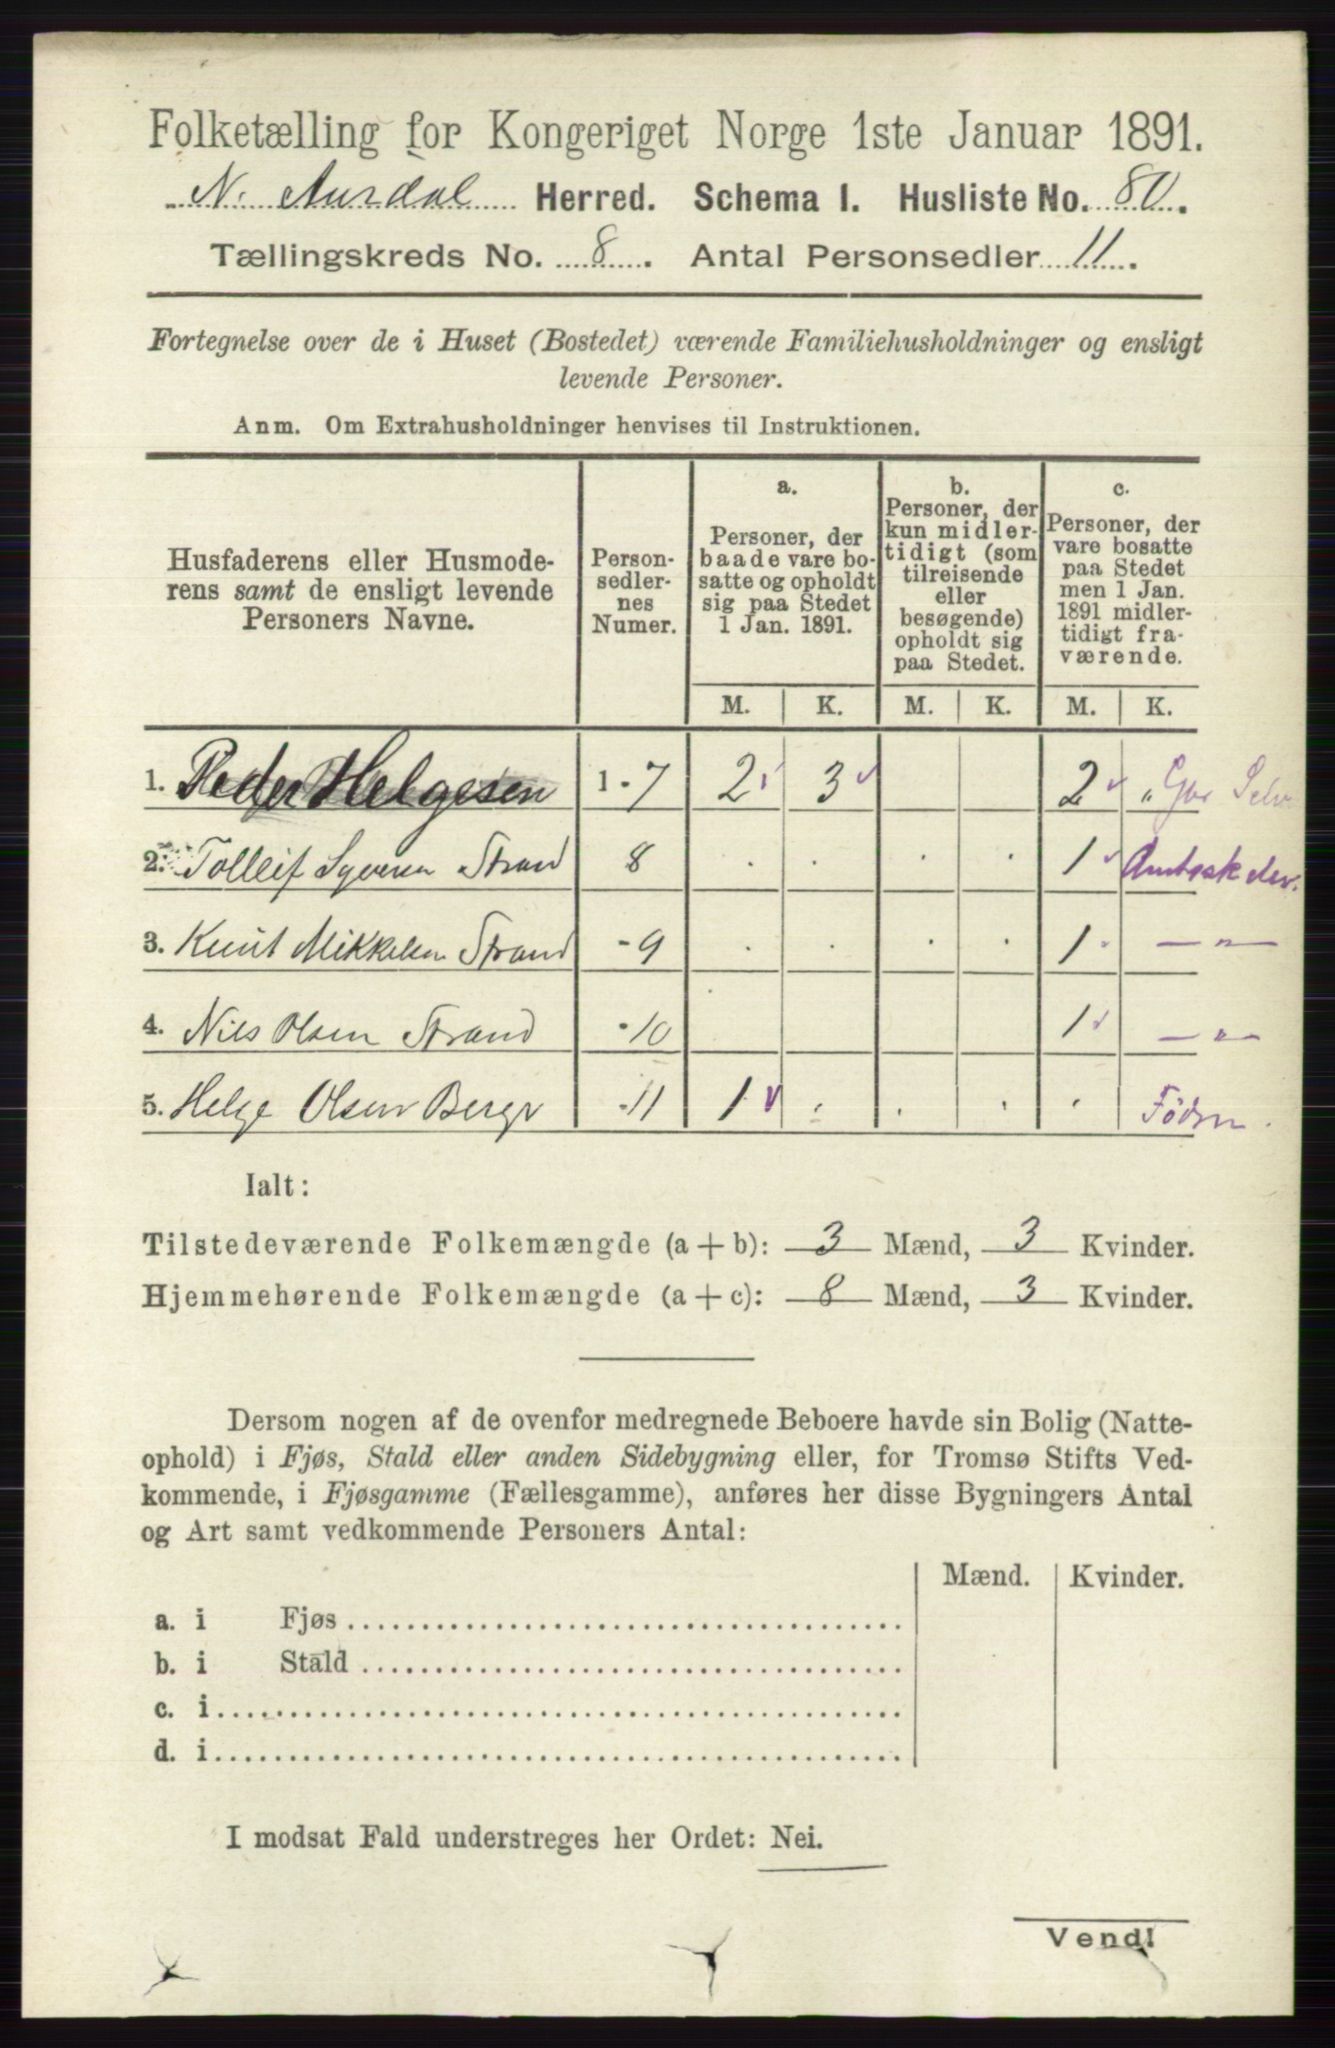 Folketælling for Kongeriget Norge 1ste Januar 1891.
N. Aurdal Herred. Schema I. Husliste No. 80.
Tællingskreds No. 8. Antal Personsedler 11.
Fortegnelse over de i Huset (Bostedet) værende Familiehusholdninger og ensligt
levende Personer.
Anm. Om Extrahusholdninger henvises til Instruktionen.
Husfaderens eller Husmode-
rens samt de ensligt levende
Personers Navne.
Person-
sedler-
nes
Numer.
a.
Personer, der
baade vare bo-
satte og opholdt
sig paa Stedet
1 Jan. 1891.
b.
Personer, der
kun midler-
tidigt (som
tilreisende
eller
besøgende)
opholdt sig
paa Stedet.
c.
Personer, der
vare bosatte
paa Stedet
men 1 Jan.
1891 midler-
tidigt fra-
værende.
M. K. M. K. M. K.
1. Peder Helgesen 1 - 7 2 3 2 " Gbr Selv
2. Tolleif Syversen Strand 8 . . . . 1 Amtssk elev.
3. Knut Mikkelsen Strand - 9 . . . . 1 — " —
4. Nils Olsen Strand - 10 1 — " —
5. Helge Olsen Berge - 11 1 . . . . Føderaadsm
Ialt:
Tilstedeværende Folkemængde (a + b): 3 Mænd, 3 Kvinder.
Hjemmehørende Folkemængde (a + c): 8 Mænd, 3 Kvinder.
Dersom nogen af de ovenfor medregnede Beboere havde sin Bolig (Natte-
ophold) i Fjøs, Stald eller anden Sidebygning eller, for Tromsø Stifts Ved-
kommende, i Fjøsgamme (Fællesgamme), anføres her disse Bygningers Antal
og Art samt vedkommende Personers Antal:
Mænd. Kvinder.
a. i Fjøs
b. i Stald
c. i
d. i
I modsat Fald understreges her Ordet: Nei.
Vend!